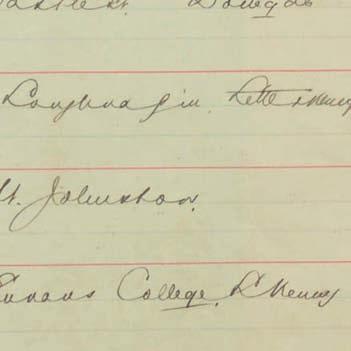 Donegal
Loughnagin Letterkenny
St. Johnston
Eunans College, L'Kenny